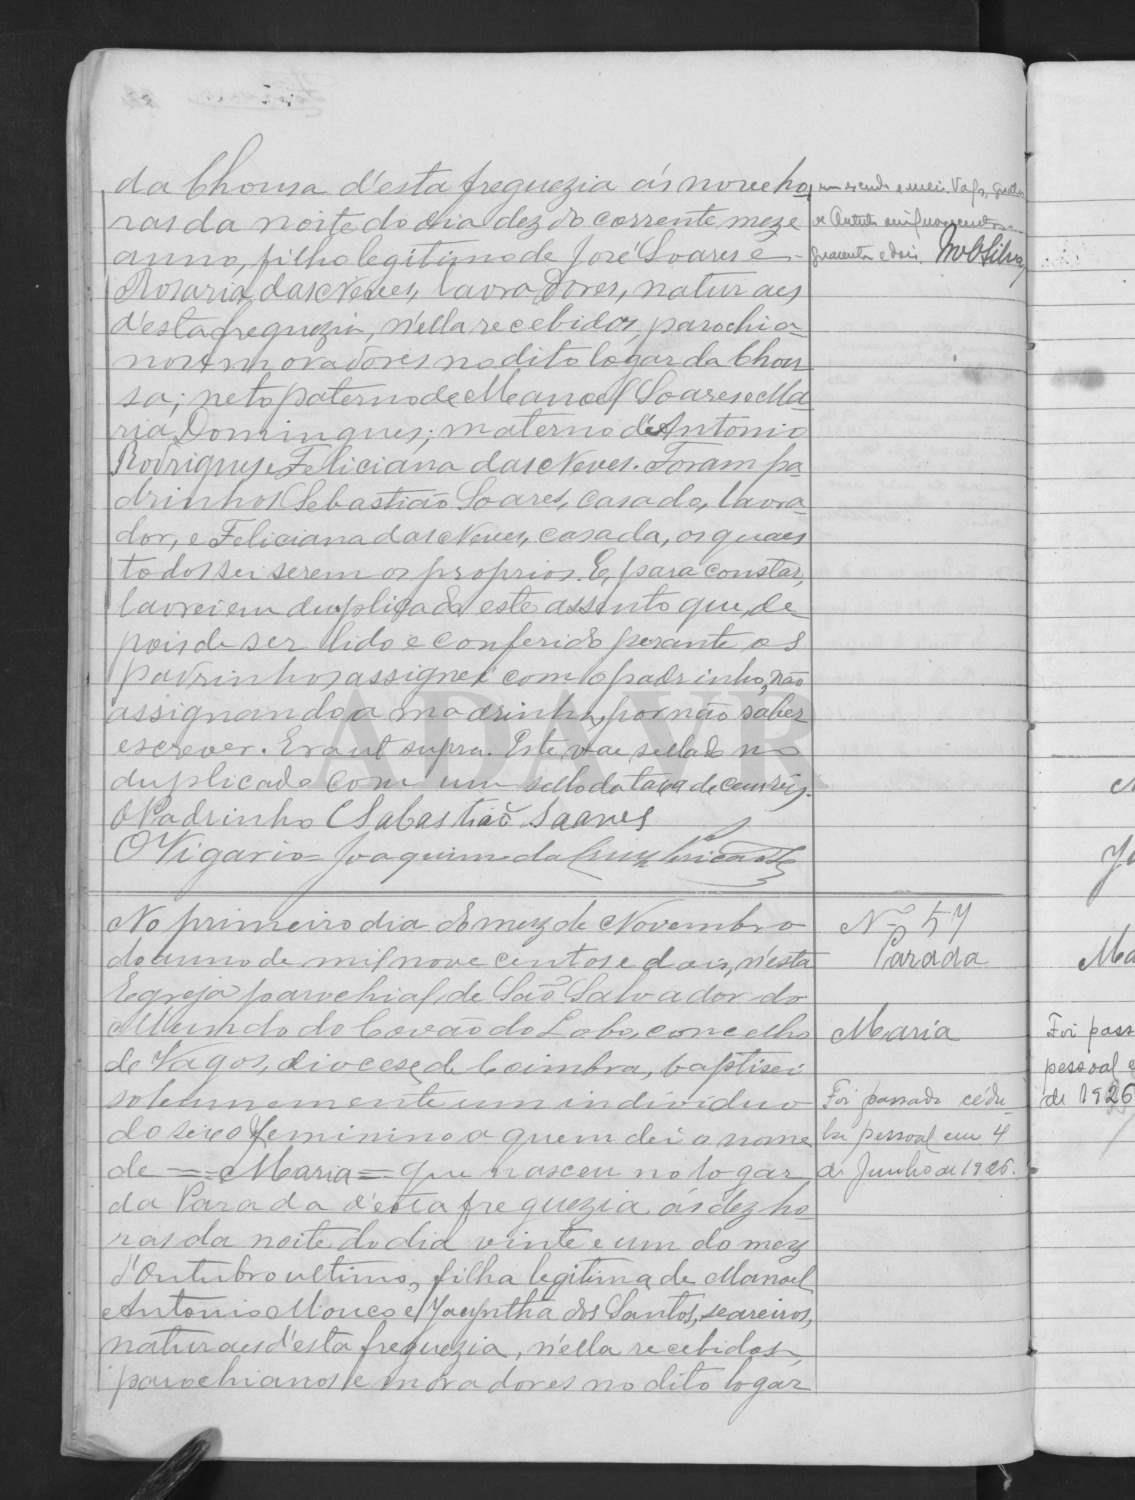 da Chousa d'esta freguezia ás nove ho
ras da noite do dia dez do corrente mez e
anno, filho legitimo de José Soares e
Rosaria das Neves, lavradores, naturaes
d'esta freguezia, n'ella recebidos, parochia-
nos e moradores no dito logar da Chou
sa; neto paterno de Manoel Soares e Ma
ria Domingues; materno d'Antonio
Rodrigues e Feliciana das Neves. Foram pa
drinhos Sebastião Soares, casado, lavra-
dor, e Feliciana das Neves, casada, os quaes
todos sei serem os proprios. E, para constar,
lavrei em duplicado este assento que, de
pois de ser lido e conferido perante os
padrinhos assignei com o padrinho, não
assignando a madrinha, por não saber
escrever. Era ut supra. Este vae sellado no
duplicado com um sello da taxa de cem réis.
O Padrinho Sabastião Saares
O Vigario = Joaquim da Cruz
de Outubro mil novecentos e
quarenta e dois. Silva
No primeiro dia do mez de Novembro
do anno de mil nove centos e dois, n'esta
Egreja parochial de São Salvador do
Mundo do Covão do Lobo, concelho
de Vagos, diocese de Coimbra, baptisei
solemnemente um individuo
do sexo feminino a quem dei o nome
de = Maria = que nasceu no logar
da Parada d'esta freguezia ás dez ho
ras da noite do dia vinte e um do mez
d'Outubro ultimo, filha legitima de Manoel
Antonio Mouco e Jacyntha dos Santos, seareiros,
naturaes d'esta freguezia, n'ella recebidos,
parochianos e moradores no dito logar
Nº 57
Parada
Maria
Foi passada cédu-
la pessoal em 4
de Junho de 1926.
Ma
Foi pass
pessoal e
de 1926
ADAVR